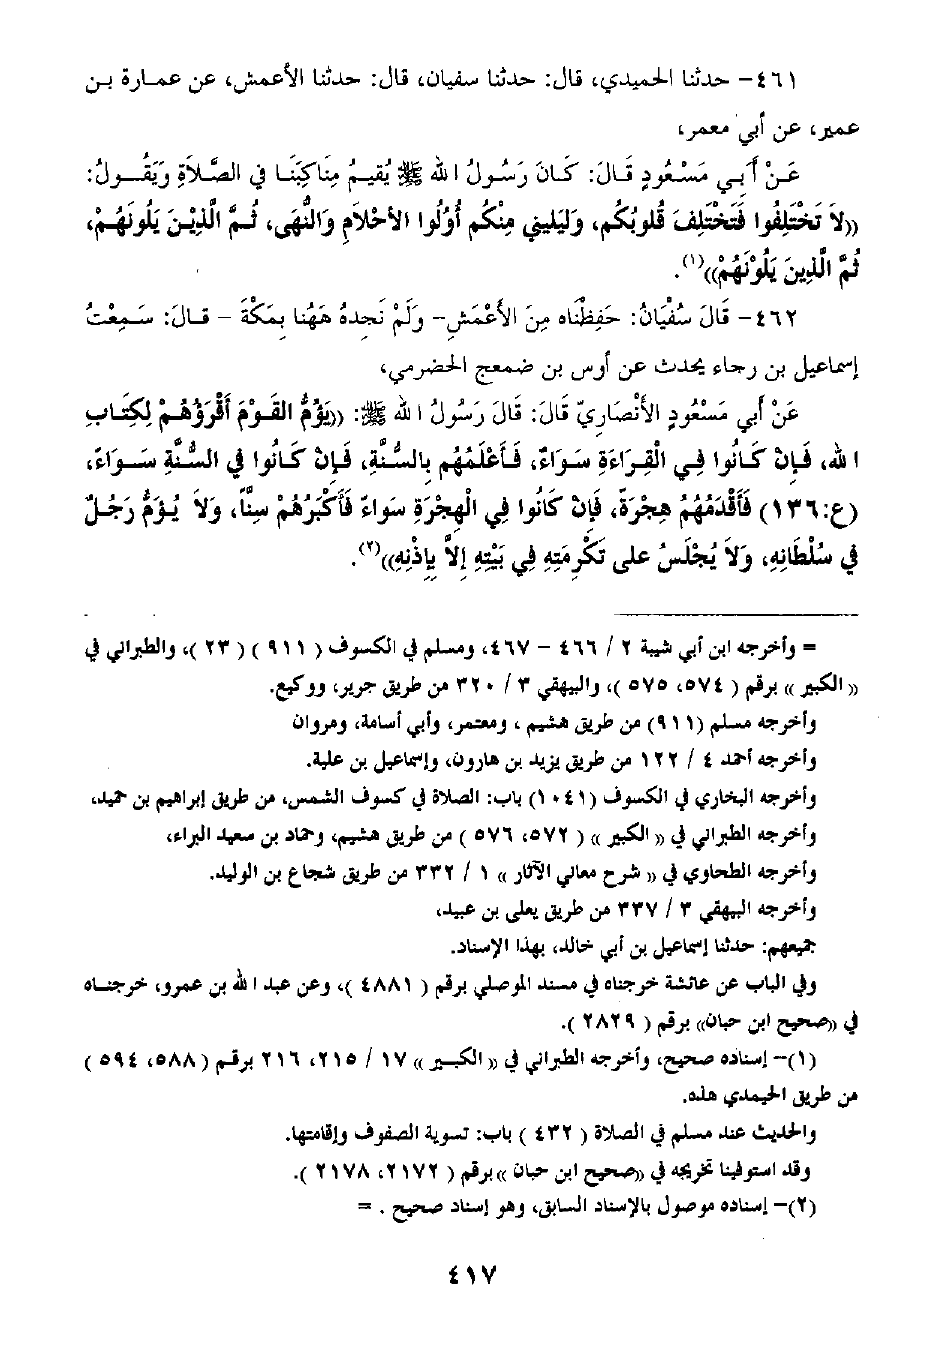 ٤٦١- حدثنا الحميدي، قال: حدثنا سفيان، قال: حدثنا الأعمش، عن عمارة بن
عمير، عن أبي معمر،
عَنْ أَبِي مَسْعُودٍ قَالَ: كَانَ رَسُولُ اللهِ ﷺ يُقِيمُ مَنَاكِبَنَا فِي الصَّلَاةِ وَيَقُولُ:
((لاَ تَخْتَلِفُوا فَتَخْتَلِفَ قُلوبُكُم، وَلْيَلِيني مِنْكُم أُوْلُوا الأَحْلاَمِ وَالنُّهَى، ثُمَّ الَّذِيْنَ يَلُونَهُمْ،
ثُمَّ الَّذِينَ يَلُونَهُمْ))(١).
٤٦٢- قَالَ سُفْيَانُ: حَفِظْنَاه مِنَ الأَعْمَشِ- وَلَمْ نَجِدهُ هَهُنا بِمَكَّةَ - قَالَ: سَمِعْتُ
إسماعيل بن رجاء يحدث عن أوس بن ضمعج الحضرمي،
عَنْ أَبِي مَسْعُودٍ الأَنْصَارِيّ قَالَ: قَالَ رَسُولُ اللهِ ﷺ: ((يَؤُمُّ القَوْمَ أَقْرَؤُهُمْ لِكِتَابِ
الله، فَإِنْ كَانُوا فِي الْقِرَاءَةِ سَوَاءً، فَأَعْلَمُهُم بِالسُّنَّةِ، فَإِنْ كَانُوا فِي السُّنَّةِ سَوَاءً،
(ع:١٣٦) فَأَقْدَمُهُمُ هِجْرَةً، فَإِنْ كَانُوا فِي الْهِجْرَةِ سَوَاءً فَأَكْبَرُهُمْ سِنًّا، وَلاَ يُؤَمُّ رَجُلٌ
فِي سُلْطَانِهِ، وَلاَ يُجْلَسُ على تَكْرِمَتِهِ فِي بَيْتِهِ إِلاَّ بِإِذْنِهِ))(٢).
= وأخرجه ابن أبي شيبة ٢ / ٤٦٦ - ٤٦٧، ومسلم في الكسوف ( ٩١١ ) ( ٢٣ )، والطبراني في
(( الكبير )) برقم ( ٥٧٤، ٥٧٥ )، والبيهقي ٣ / ٣٢٠ من طريق جرير، ووكيع.
وأخرجه مسلم (٩١١) من طريق هشيم ، ومعتمر، وأبي أسامة، ومروان
وأخرجه أحمد ٤ / ١٢٢ من طريق يزيد بن هارون، وإسماعيل بن علية.
وأخرجه البخاري في الكسوف (١٠٤١) باب: الصلاة في كسوف الشمس، من طريق إبراهيم بن حميد،
وأخرجه الطبراني في (( الكبير )) ( ٥٧٢، ٥٧٦ ) من طريق هشيم، وحماد بن سعيد البراء،
وأخرجه الطحاوي في (( شرح معاني الآثار )) ١ / ٣٣٢ من طريق شجاع بن الوليد.
وأخرجه البيهقي ٣ / ٣٣٧ من طريق يعلى بن عبيد،
جميعهم: حدثنا إسماعيل بن أبي خالد، بهذا الإسناد.
وفي الباب عن عائشة خرجناه في مسند الموصلي برقم ( ٤٨٨١ )، وعن عبد الله بن عمرو، خرجناه
في ((صحيح ابن حبان)) برقم ( ٢٨٢٩ ).
(١)- إسناده صحيح، وأخرجه الطبراني في (( الكبير )) ١٧ / ٢١٥، ٢١٦ برقم ( ٥٨٨، ٥٩٤ )
من طريق الحيمدي هذه.
والحديث عند مسلم في الصلاة ( ٤٣٢ ) باب: تسوية الصفوف وإقامتها.
وقد استوفينا تخريجه في ((صحيح ابن حبان )) برقم ( ٢١٧٢، ٢١٧٨ ).
(٢)- إسناده موصول بالإسناد السابق، وهو إسناد صحيح . =
٤١٧